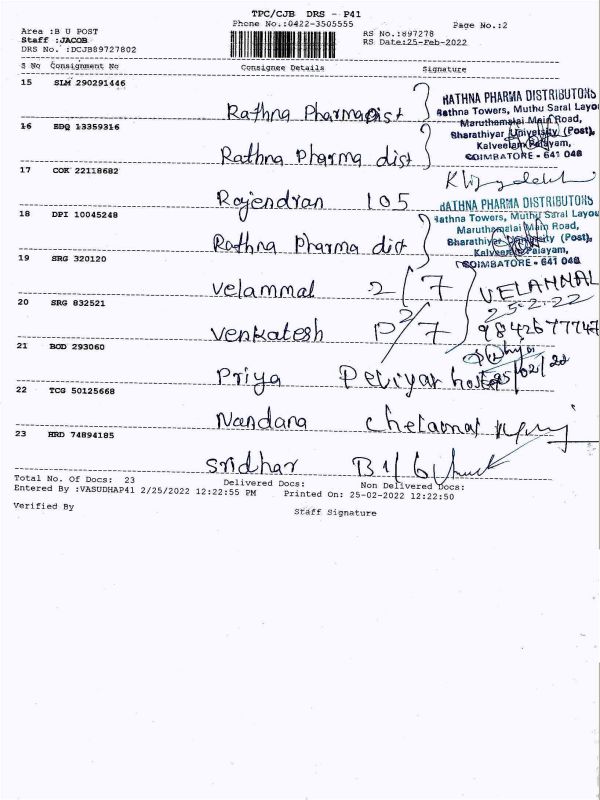 TPC/CJB DRS - P41
Phone No.:0422-3505555 Page No.:2
Area :B U POST
Staff :JACOB
DRS No. :DCJB89727802
RS No.:897278
RS Date:25-Feb-2022
S No Consignment No Consignee Details Signature
15 SLM 290291446
Rathna Pharma Dist
RATHNA PHARMA DISTRIBUTORS
Rathna Towers, Muthu Saral Layou
Maruthamalai Main Road,
Bharathiyar University (Post),
Kalveerampalayam,
COIMBATORE - 641 046
16 EDQ 13359316
Rathna Pharma dist
17 COK 22118682
Rajendran 105
18 DPI 10045248
Rathna Pharma dist
RATHNA PHARMA DISTRIBUTORS
Rathna Towers, Muthu Saral Layou
Maruthamalai Main Road,
Bharathiyar University (Post),
COIMBATORE - 641 046
19 SRG 320120
Velammal 2/7
VELAMMAL
25-2-22
20 SRG 832521
Venkatesh P2/7
21 BOD 293060
Priya Periyar hostel
25/02/22
22 TCG 50125668
Nandana
23 HRD 74894185
Sridhar B1/6
Total No. Of Docs: 23 Delivered Docs: Non Delivered Docs:
Entered By :VASUDHAP41 2/25/2022 12:22:55 PM Printed On: 25-02-2022 12:22:50
Verified By Staff Signature